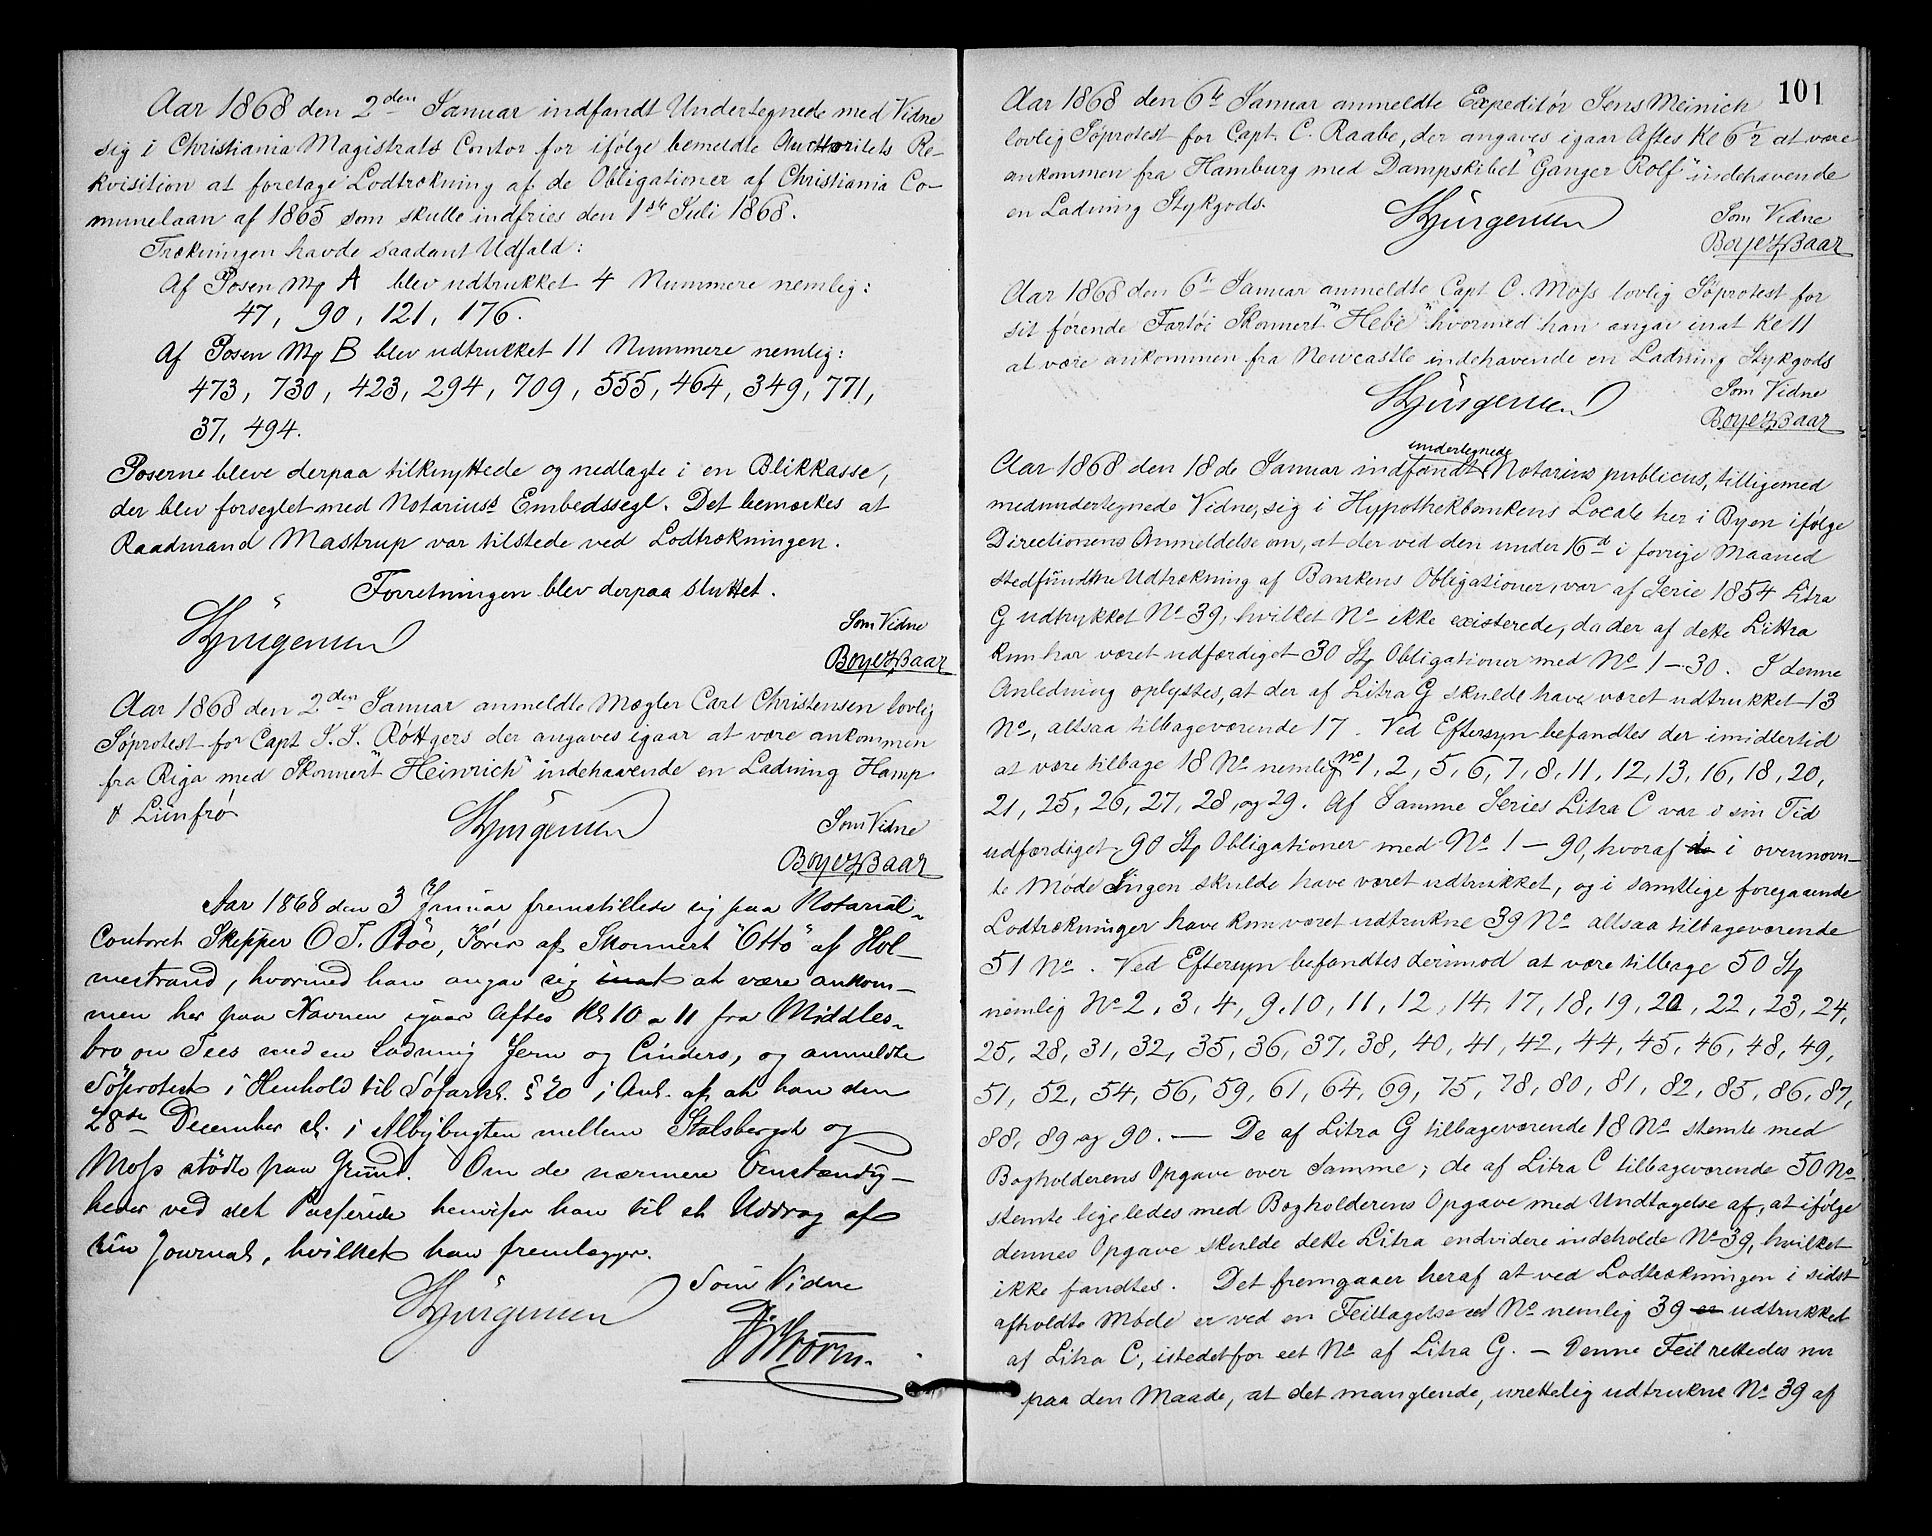 Aar 1868 den 2den Januar indfandt Undertegnede med Vidne
sig i Christiania Magistrats Contor for ifølge bemeldte Aucthoritets Re-
kvisition at foretage Lodtrækning af de Obligationer af Christiania Co-
munelaan af 1865 som skulle indfries den 1ste Juli 1868.
Trækningen havde saadant Udfald:
Af Posen Mg A blev udtrukket 4 Nummere nemlig:
47, 90, 121, 176.
Af Posen Mg B blev udtrukket 11 Nummere nemlig:
473, 730, 423, 294, 709, 555, 464, 349, 771,
37, 494.
Poserne bleve derpaa tilknyttede og nedlagte i en Blikkasse,
der blev forseglet med Notariuss Embedssegl. Det bemærkes at
Raadmand Mastrup var tilstede ved Lodtrækningen.
Forretningen blev derpaa sluttet.
Jürgensen
Som Vidne
Boye Baar
Aar 1868 den 2den Januar anmeldte Mægler Carl Christensen lovlig
Søprotest for Capt J. J. Røttgers der angaves igaar at være ankommen
fra Riga med Skonnert "Heinrich" indehavende en Ladning Hamp
& Liinfrø
Jürgensen
Som Vidne
Boye Baar
Aar 1868 den 3 Januar fremstillede sig paa Notarial-
Contoret Skipper O T. Bøe, Fører af Skonnert "Otto" af Hol-
mestrand, hvormed han angav sig inat at være ankom-
men her paa Havnen igaar Aftes Kl 10 a 11 fra Middles-
bro on Tees med en Ladning Jern og Cinders, og anmeldte
Søprotest i Henhold til Søfartsl. § 20 i Anl. af at han den
28de December d. i Albybugten mellem Stalsberget og
Moss stødte paa Grund. Om de nærmere Omstændig-
heder ved det Passerede henviser han til et Uddrag af
sin Journal, hvilket han fremlægger.
Jürgensen
Som Vidne
Storm.
101
Aar 1868 den 6te Januar anmeldte Expeditør Jens Meinich
lovlig Søprotest for Capt. C. Raabe, der angaves igaar Aftes Kl 6½ at være
ankommen fra Hamburg med Dampskibet "Ganger Rolf" indehavende
en Ladning Stykgods.
Jürgensen
Som Vidne
Boye Baar
Aar 1868 den 6te Januar anmeldte Capt C. Moss lovlig Søprotest for
sit førende Fartøi Skonnert "Hebe" hvormed han angav inat Kl 11
at være ankommen fra Newcastle indehavende en Ladning Stykgods
Jürgensen
Som Vidne
Boye Baar
undertegnede
Aar 1868 den 18de Januar indfandt Notarius publicus, tilligemed
medundertegnede Vidne, sig i Hypothekbankens Locale her i Byen ifølge
Directionens Anmeldelse om, at der ved den under 16d i forrige Maaned
stedfundne Udtrækning af Bankens Obligationer, var af Serie 1854 Litra
G udtrykket No 39, hvilket No ikke existerede, da der af dette Littra
kun har været udfærdiget 30 Stp Obligationer med No 1-30. I denne
Anledning oplystes, at der af Litra G skulde have været udtrukket 13
No, altsaa tilbageværende 17. Ved Eftersyn befandtes der imidlertid
at være tilbage 18 No nemlig no 1, 2, 5, 6, 7, 8, 11, 12, 13, 16, 18, 20,
21, 25, 26, 27, 28, og 29. Af Samme Series Litra C var i sin Tid
udfærdiget 90 Stp Obligationer med No 1 - 90, hvoraf de i ovennævn-
te Møde Ingen skulde have været udtrukket, og i samtlige foregaaende
Lodtrækninger have kun været udtrukne 39 No altsaa tilbageværende
51 No. Ved Eftersyn befandtes derimod at være tilbage 50 Stp
nemlig No 2, 3, 4, 9, 10, 11, 12, 14, 17, 18, 19, 20, 22, 23, 24,
25, 28, 31, 32, 35, 36, 37, 38, 40, 41, 42, 44, 45, 46, 48, 49,
51, 52, 54, 56, 59, 61, 64, 69, 75, 78, 80, 81, 82, 85, 86, 87,
88, 89 og 90. — De af Litra G tilbageværende 18 No stemte med
Bogholderens Opgave over Samme; de af Litra C tilbageværende 50 No
stemte ligeledes med Bogholderens Opgave med Undtagelse af, at ifølge
dennes Opgave skulde dette Litra endvidere indeholde No 39, hvilket
ikke fandtes. Det fremgaaer heraf at ved Lodtrækningen i sidst
afholdte Møde er ved en Feiltagelse et No nemlig 39 er udtrukket
af Litra C, istedetfor eet No af Litra G. — Denne Feil rettedes nu
paa den Maade, at det manglende, urettelig udtrukne No 39 af